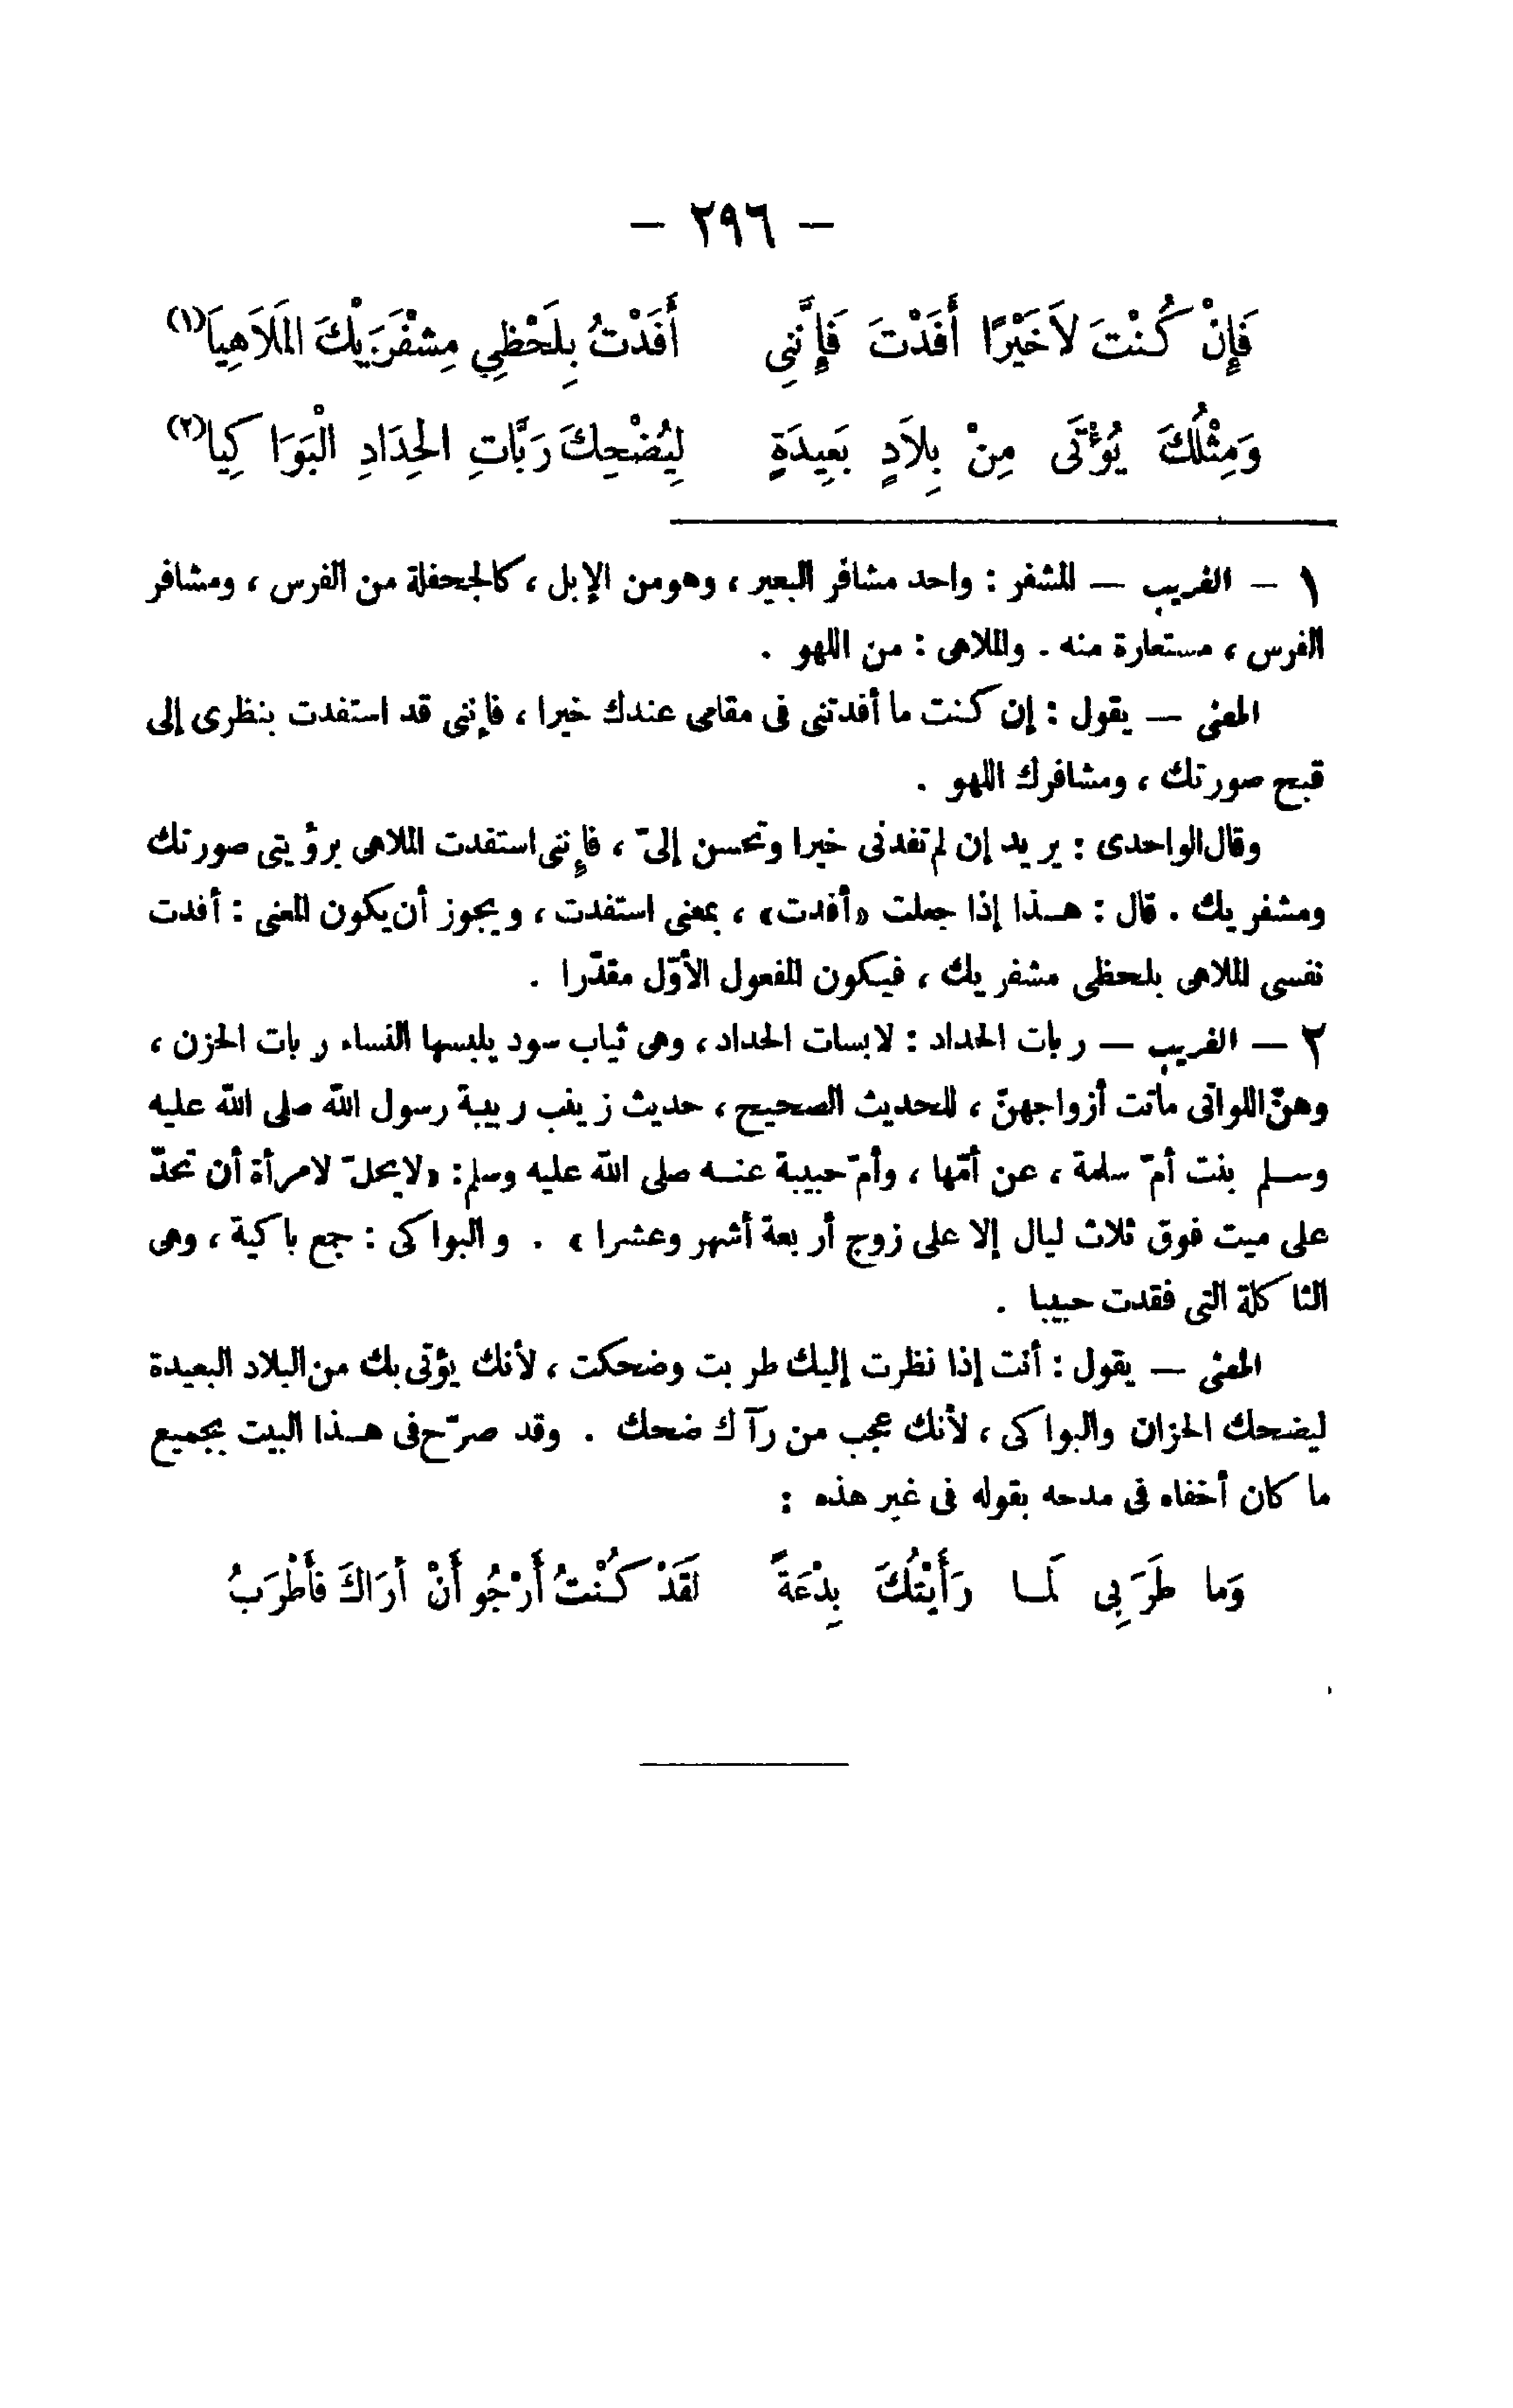 — ٢٩٦ —
فَإِنْ كُنْتَ لاَ خَيْرًا أَفَدْتَ فَإِنَّنِى أَفَدْتُ بِلَحْظِي مِشْفَرَيْكَ المَلاَهِيَا(١)
وَمِثْلُكَ يُؤْتَى مِنْ بِلاَدٍ بَعِيدَةٍ لِيُضْحِكَ رَبَّاتِ الحِدَادِ الْبَوَاكِيا(٢)
١ — الغريب — المشفر : واحد مشافر البعير ، وهو من الإبل ، كالجحفلة من الفرس ، ومشافر
الفرس ، مستعارة منه . والملاهى : من اللهو .
المعنى — يقول : إن كنت ما أفدتنى فى مقامى عندك خيرا ، فإننى قد استفدت بنظرى إلى
قبح صورتك ، ومشافرك اللهو .
وقال الواحدى : يريد إن لم تفدنى خيرا وتحسن إلىّ ، فإننى استفدت الملاهى برؤيتى صورتك
ومشفريك . قال : هـذا إذا جعلت «أفدت» ، بمعنى استفدت ، ويجوز أن يكون المعنى : أفدت
نفسى الملاهى بلحظى مشفريك ، فيكون المفعول الأوّل مقدّرا .
٢ — الغريب — ربات الحداد : لابسات الحداد ، وهى ثياب سود يلبسها النساء ربات الحزن ،
وهنّ اللواتى ماتت أزواجهنّ ، للحديث الصحيح ، حديث زينب ربيبة رسول الله صلى الله عليه
وسـلم بنت أمّ سلمة ، عن أمّها ، وأمّ حبيبة عنـه صلى الله عليه وسلم : «لا يحلّ لامرأة أن تحدّ
على ميت فوق ثلاث ليال إلا على زوج أربعة أشهر وعشرا » . والبواكى : جمع باكية ، وهى
الثاكلة التى فقدت حبيبا .
المعنى — يقول : أنت إذا نظرت إليك طربت وضحكت ، لأنك يؤتى بك من البلاد البعيدة
ليضحك الحزان والبواكى ، لأنك عجب من رآك ضحك . وقد صرّح فى هـذا البيت بجميع
ما كان أخفاه فى مدحه بقوله فى غير هذه :
وَما طَرَبِى لَمـا رَأَيْتُكَ بِدْعَةً لَقَدْ كُنْتُ أَرْجُو أَنْ أَرَاكَ فَأَطْرَبُ